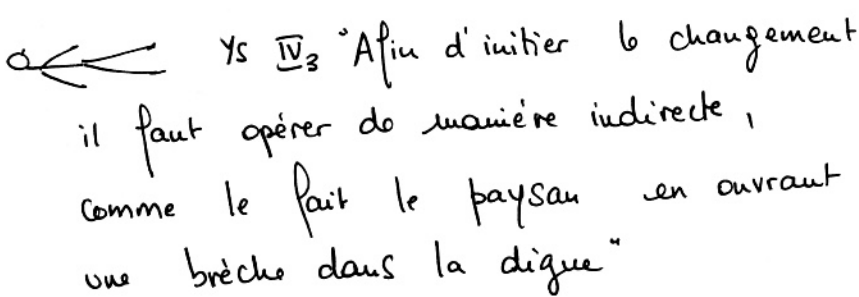 YS IV3 "Afin d'initier le changement
il faut opérer de manière indirecte,
comme le fait le paysan en ouvrant
une brèche dans la digue"